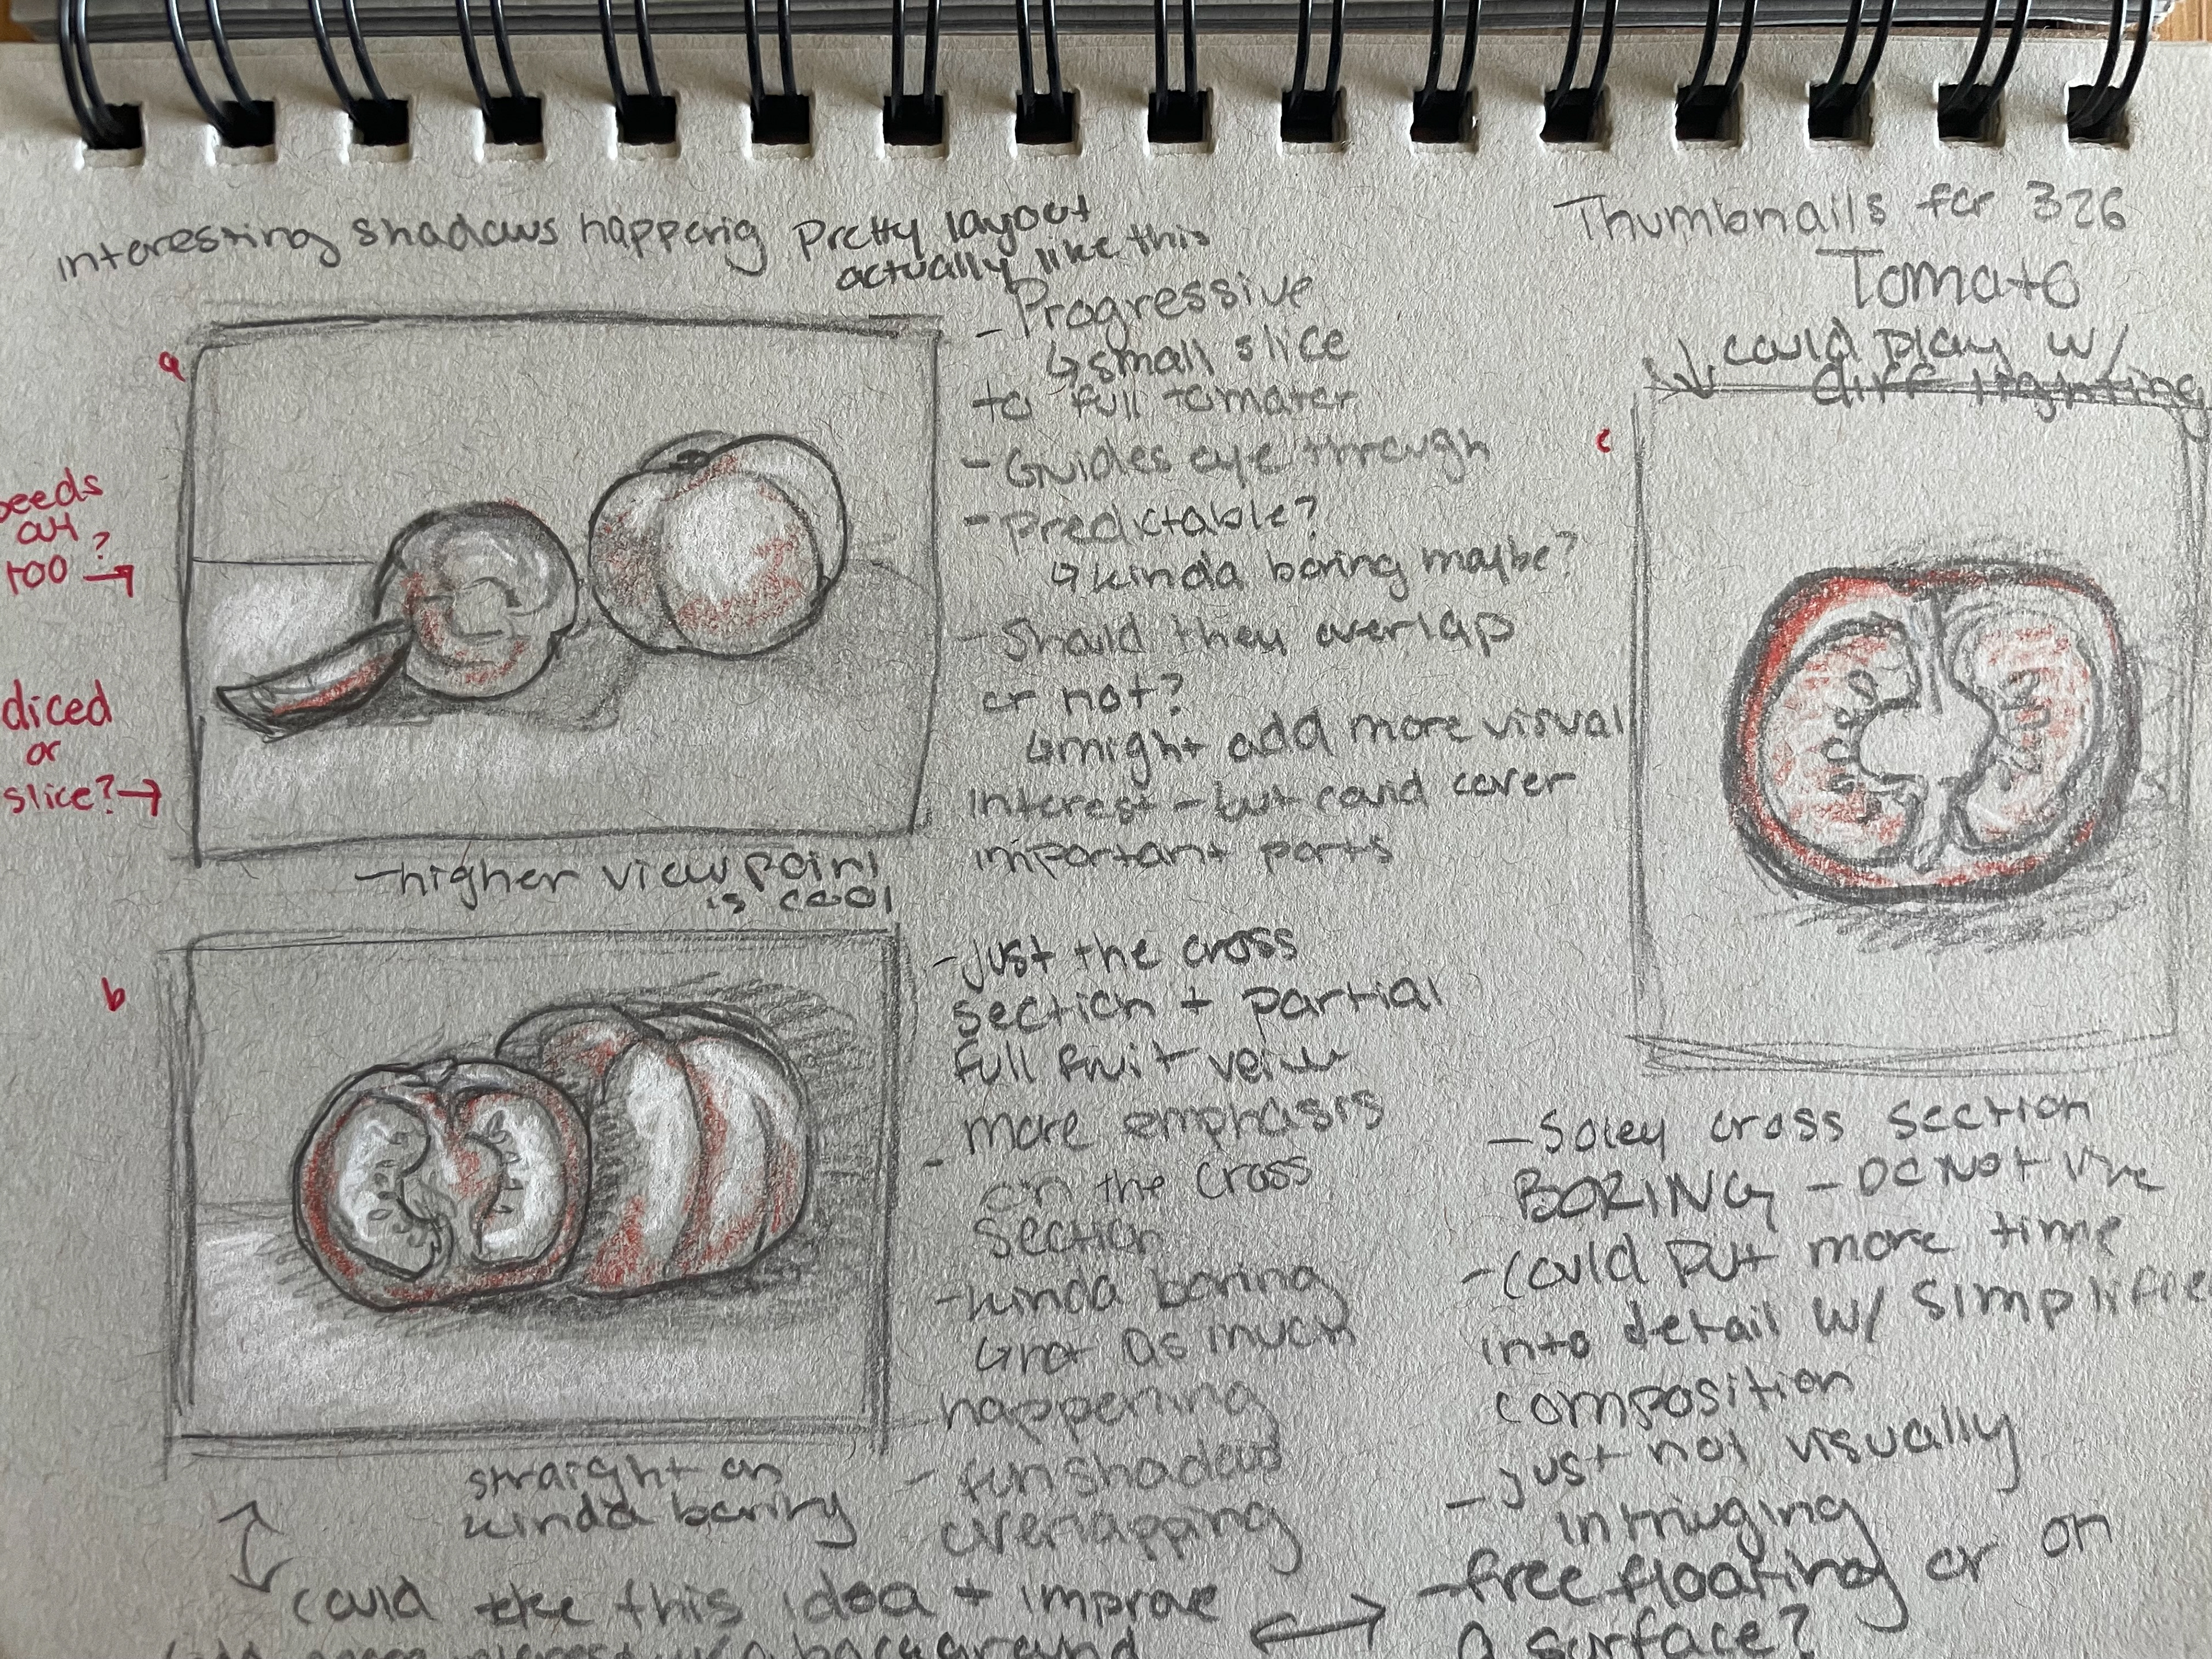 Thumbnails for 326
Tomato
could play w/
diff lighting
interesting shadows happenig
Pretty layout
actually like this
- Progressive
↳ small slice
to full tomater
- Guides eye through
- predictable?
↳ kinda boring maybe?
- Should they overlap
or not?
↳ might add more visual
interest - but could cover
important parts
a
seeds
out
too?
diced
or
slice?
- higher viewpoint
is cool
b
- just the cross
section + partial
full fruit veiw
- more emphasis
on the cross
section
- kinda boring
↳ not as much
happening
- fun shadows
overlapping
straight on
kinda boring
could take this idea + improve
background
c
- Soley cross section
BORING - DO NOT like
- Could put more time
into detail w/ simplified
composition
- just not visually
intriuging
- free floating or on
a surface?